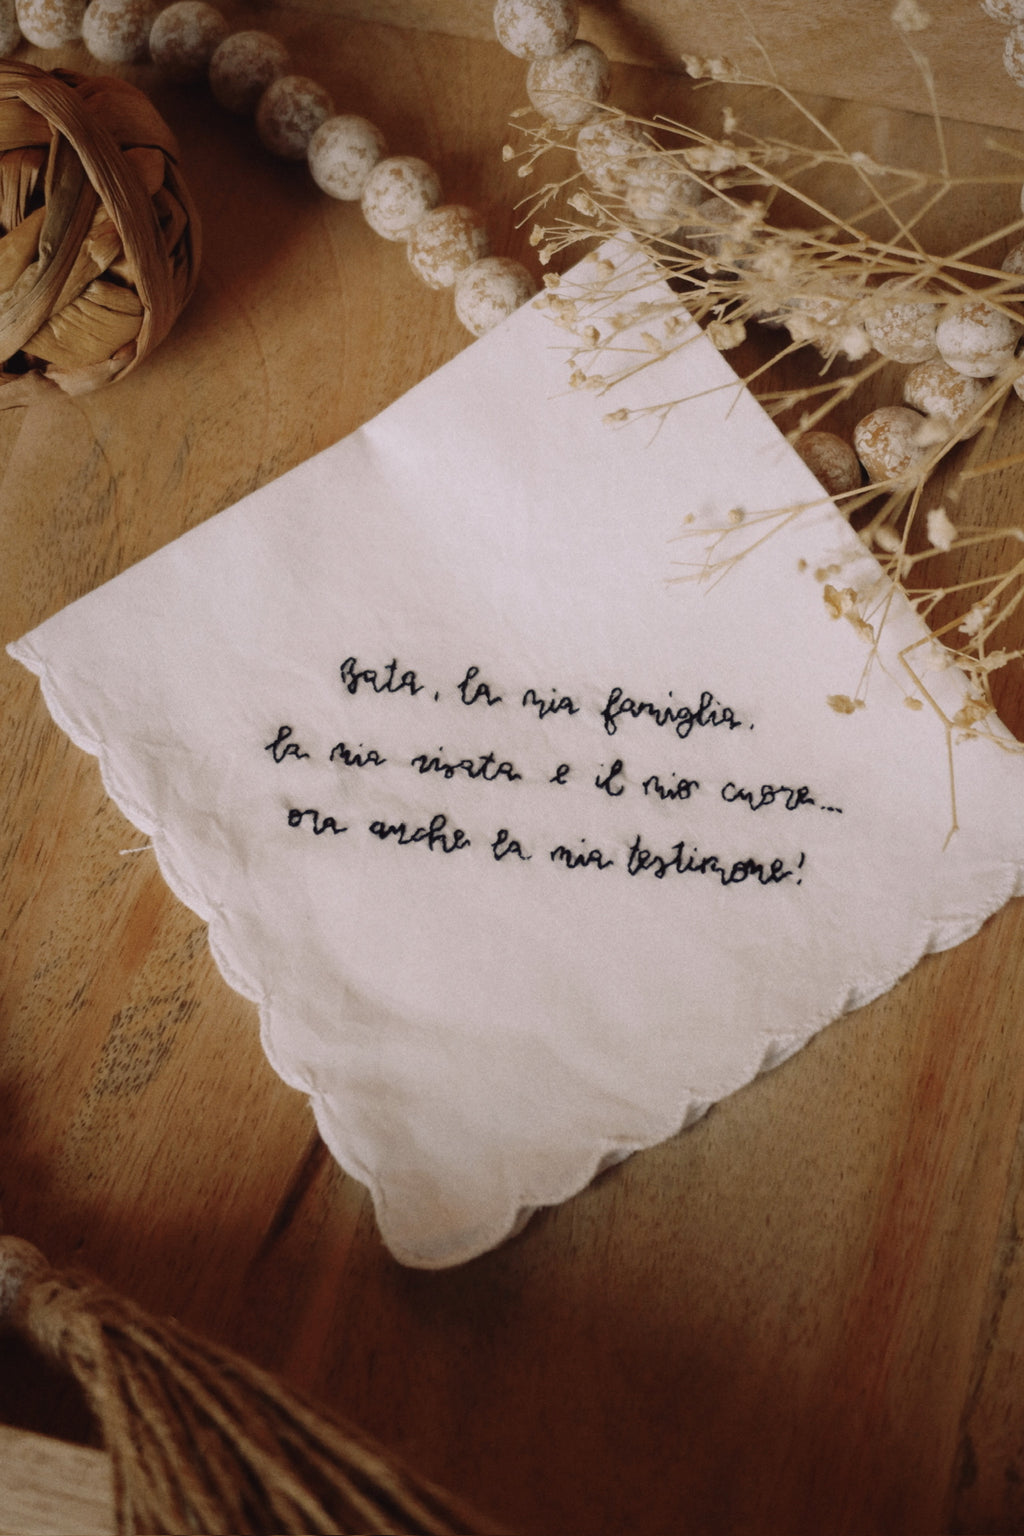 Bata, la mia famiglia,
la mia risata e il mio cuore...
ora anche la mia testimone!